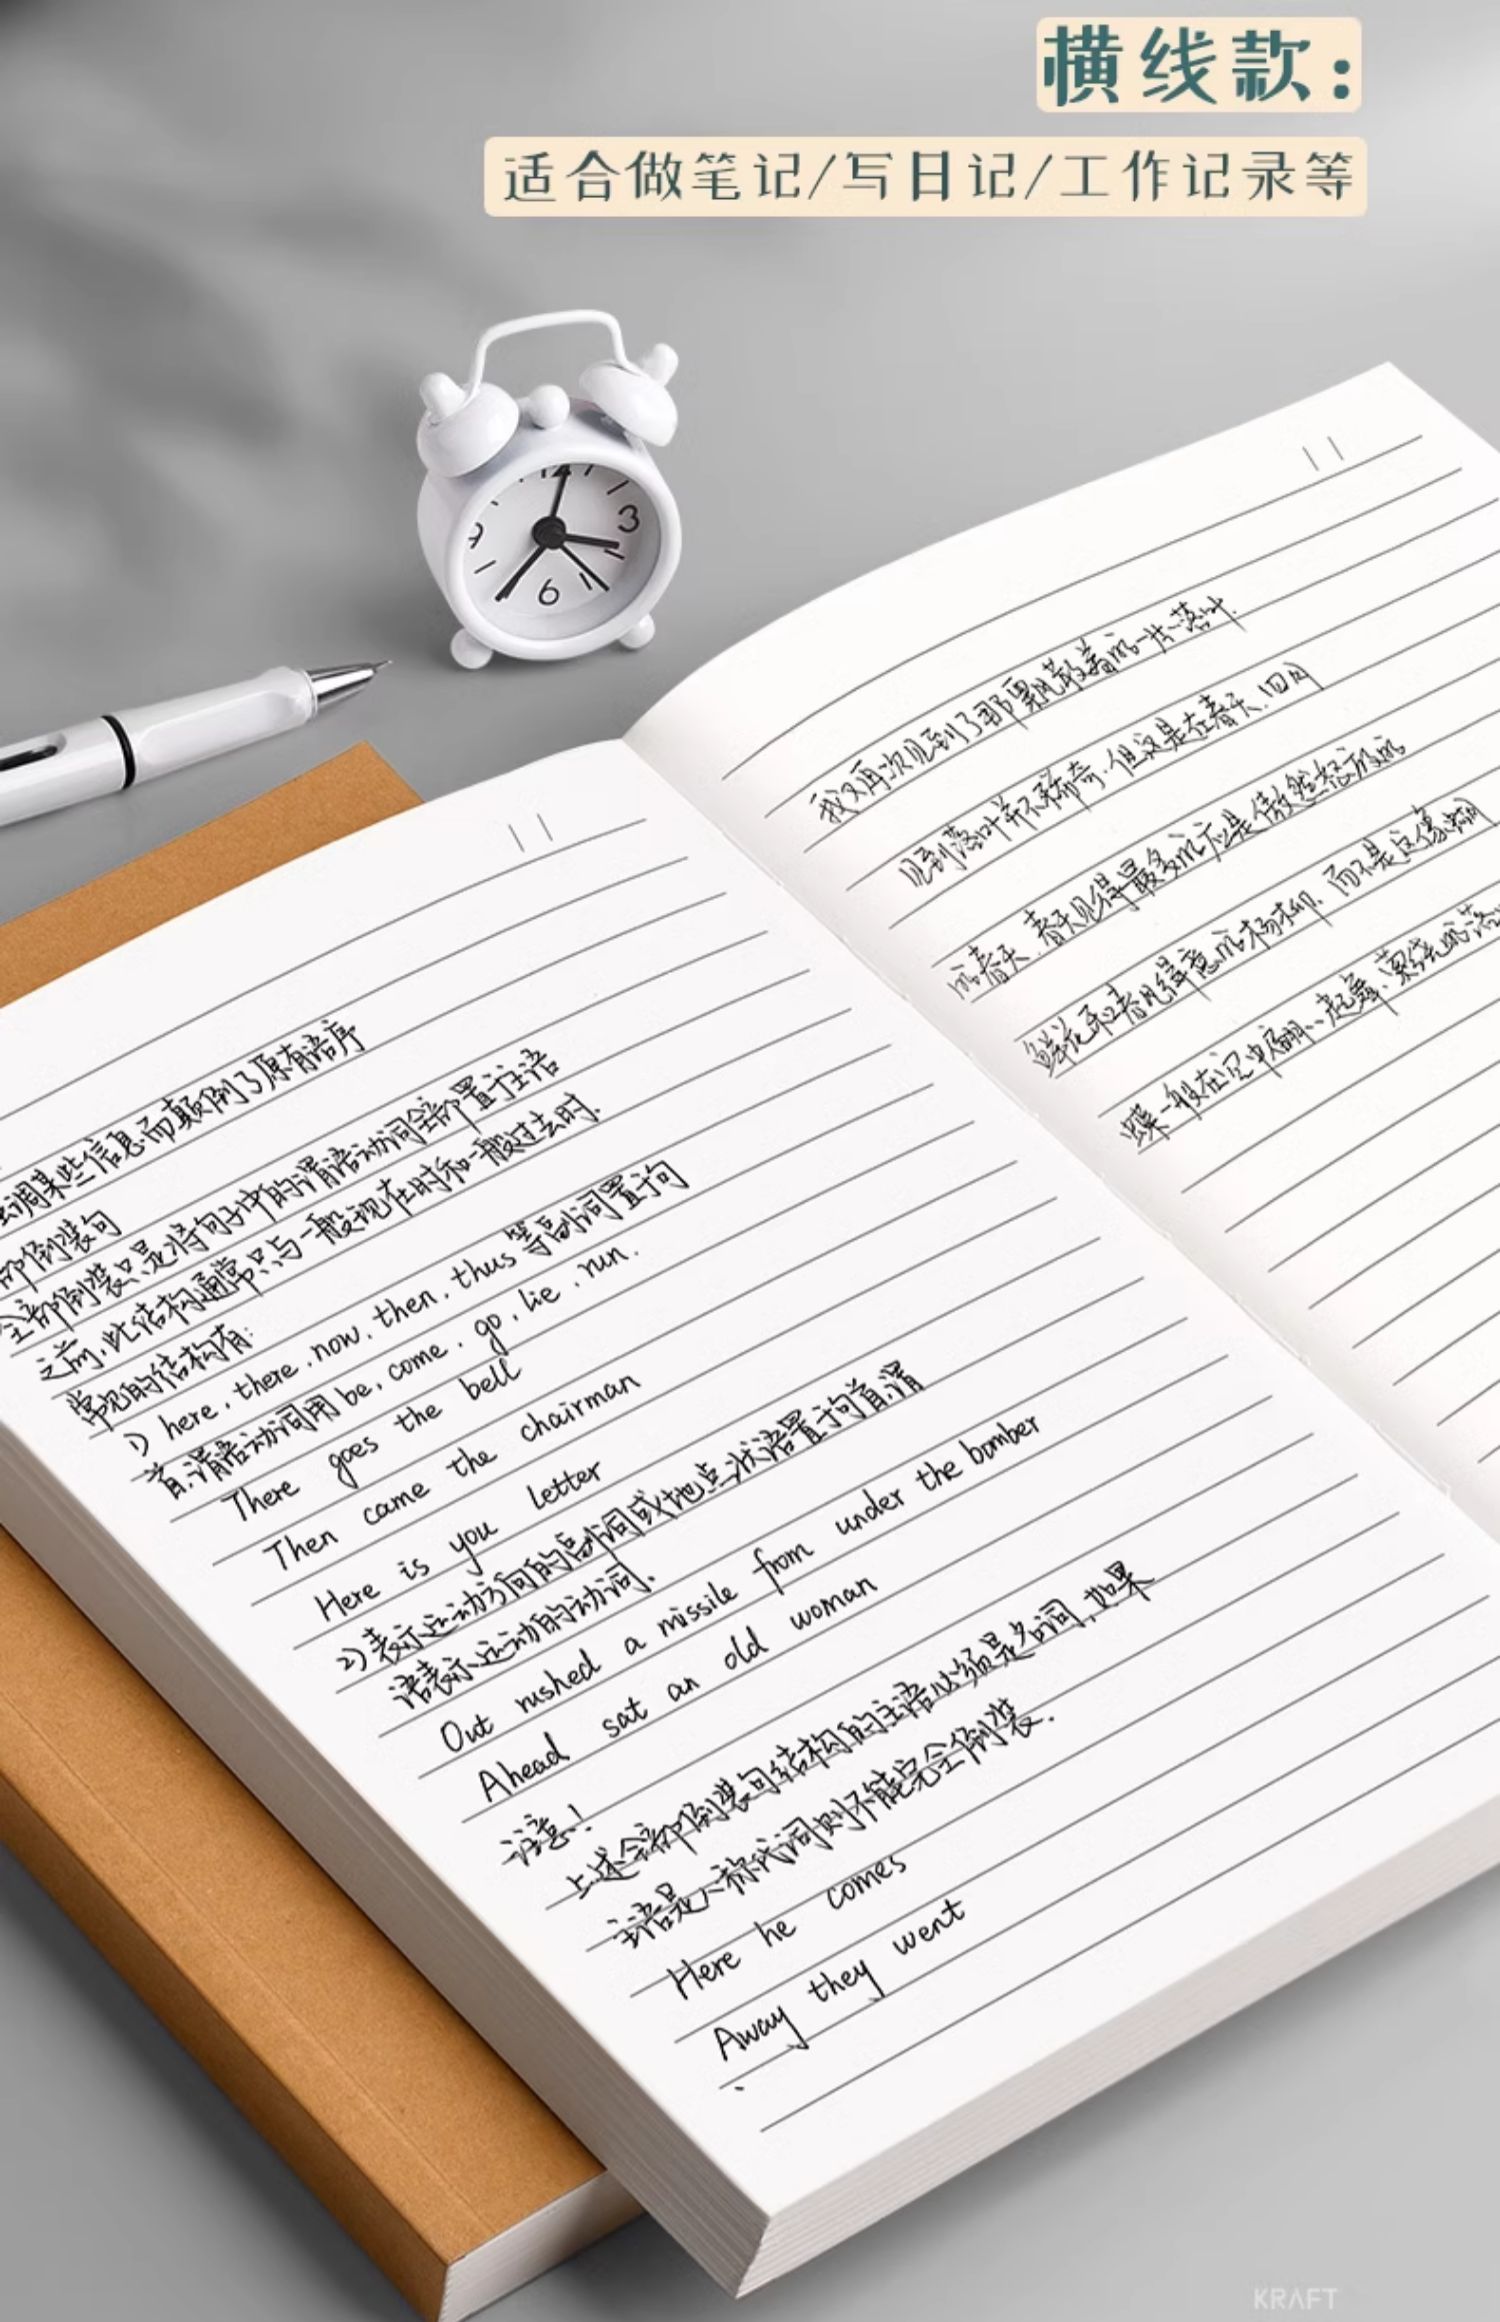 横线款：
适合做笔记/写日记/工作记录等
12
3
6
9
强调某些信息而颠倒了原有语序
部倒装句
全部倒装只是将句子中的谓语动词全部置于主语
之前,此结构通常只与一般现在时和一般过去时.
常见的结构有:
1) here, there, now, then, thus 等副词置于句
首,谓语动词用 be, come, go, lie, run.
There goes the bell
Then came the chairman
Here is you letter
2) 表示运动方向的副词或地点状语置于句首,谓
语表示运动的动词.
Out rushed a missile from under the bomber
Ahead sat an old woman
注意!
上述全部倒装句结构的主语必须是名词,如果
主语是人称代词则不能完全倒装.
Here he comes
Away they went
我又再次见到了那飘散着的一片落叶.
见到落叶并不稀奇,但这是在春天,四月
的春天,春天见得最多的应是傲然怒放的
鲜花和春风得意的杨柳,而不是这像蝴
蝶一般在空中翩翩起舞、萦绕的落
KRAFT